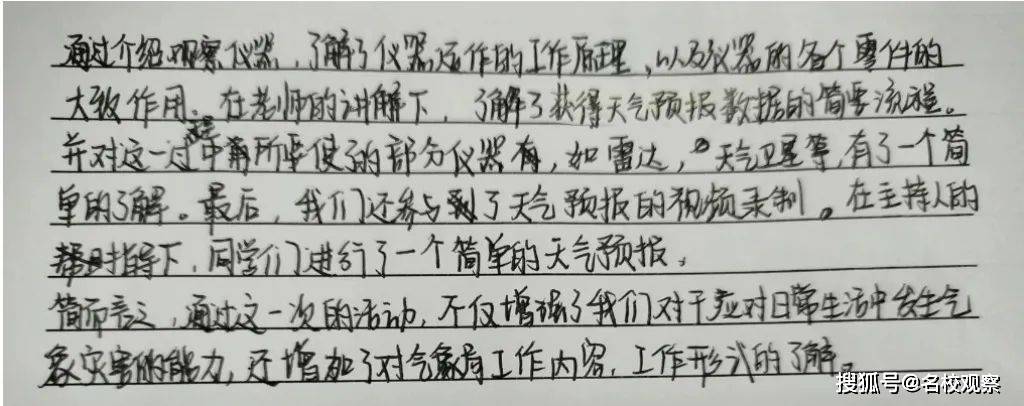 通过介绍观察仪器，了解了仪器运作的工作原理，以及仪器的各个零件的
大致作用。在老师的讲解下，了解了获得天气预报数据的简要流程。
并对这一过程中所要使了的部分仪器有，如雷达，天气卫星等，有了一个简
单的了解。最后，我们还参与到了天气预报的视频录制。在主持人的
指导下，同学们进行了一个简单的天气预报。
简而言之，通过这一次的活动，不仅增强了我们对于应对日常生活中发生气
象灾害的能力，还增加了对气象局工作内容，工作形式的了解。
搜狐号@名校观察